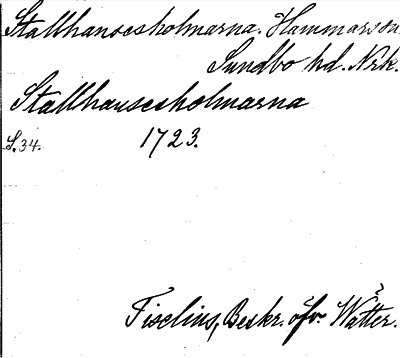 Stallhansesholmarna. Hammar sn.
Sundbo hd. Nrk.
Stallhansesholmarna
S. 34. 1723.
Tiselius, Beskr. öfv. Wätter.